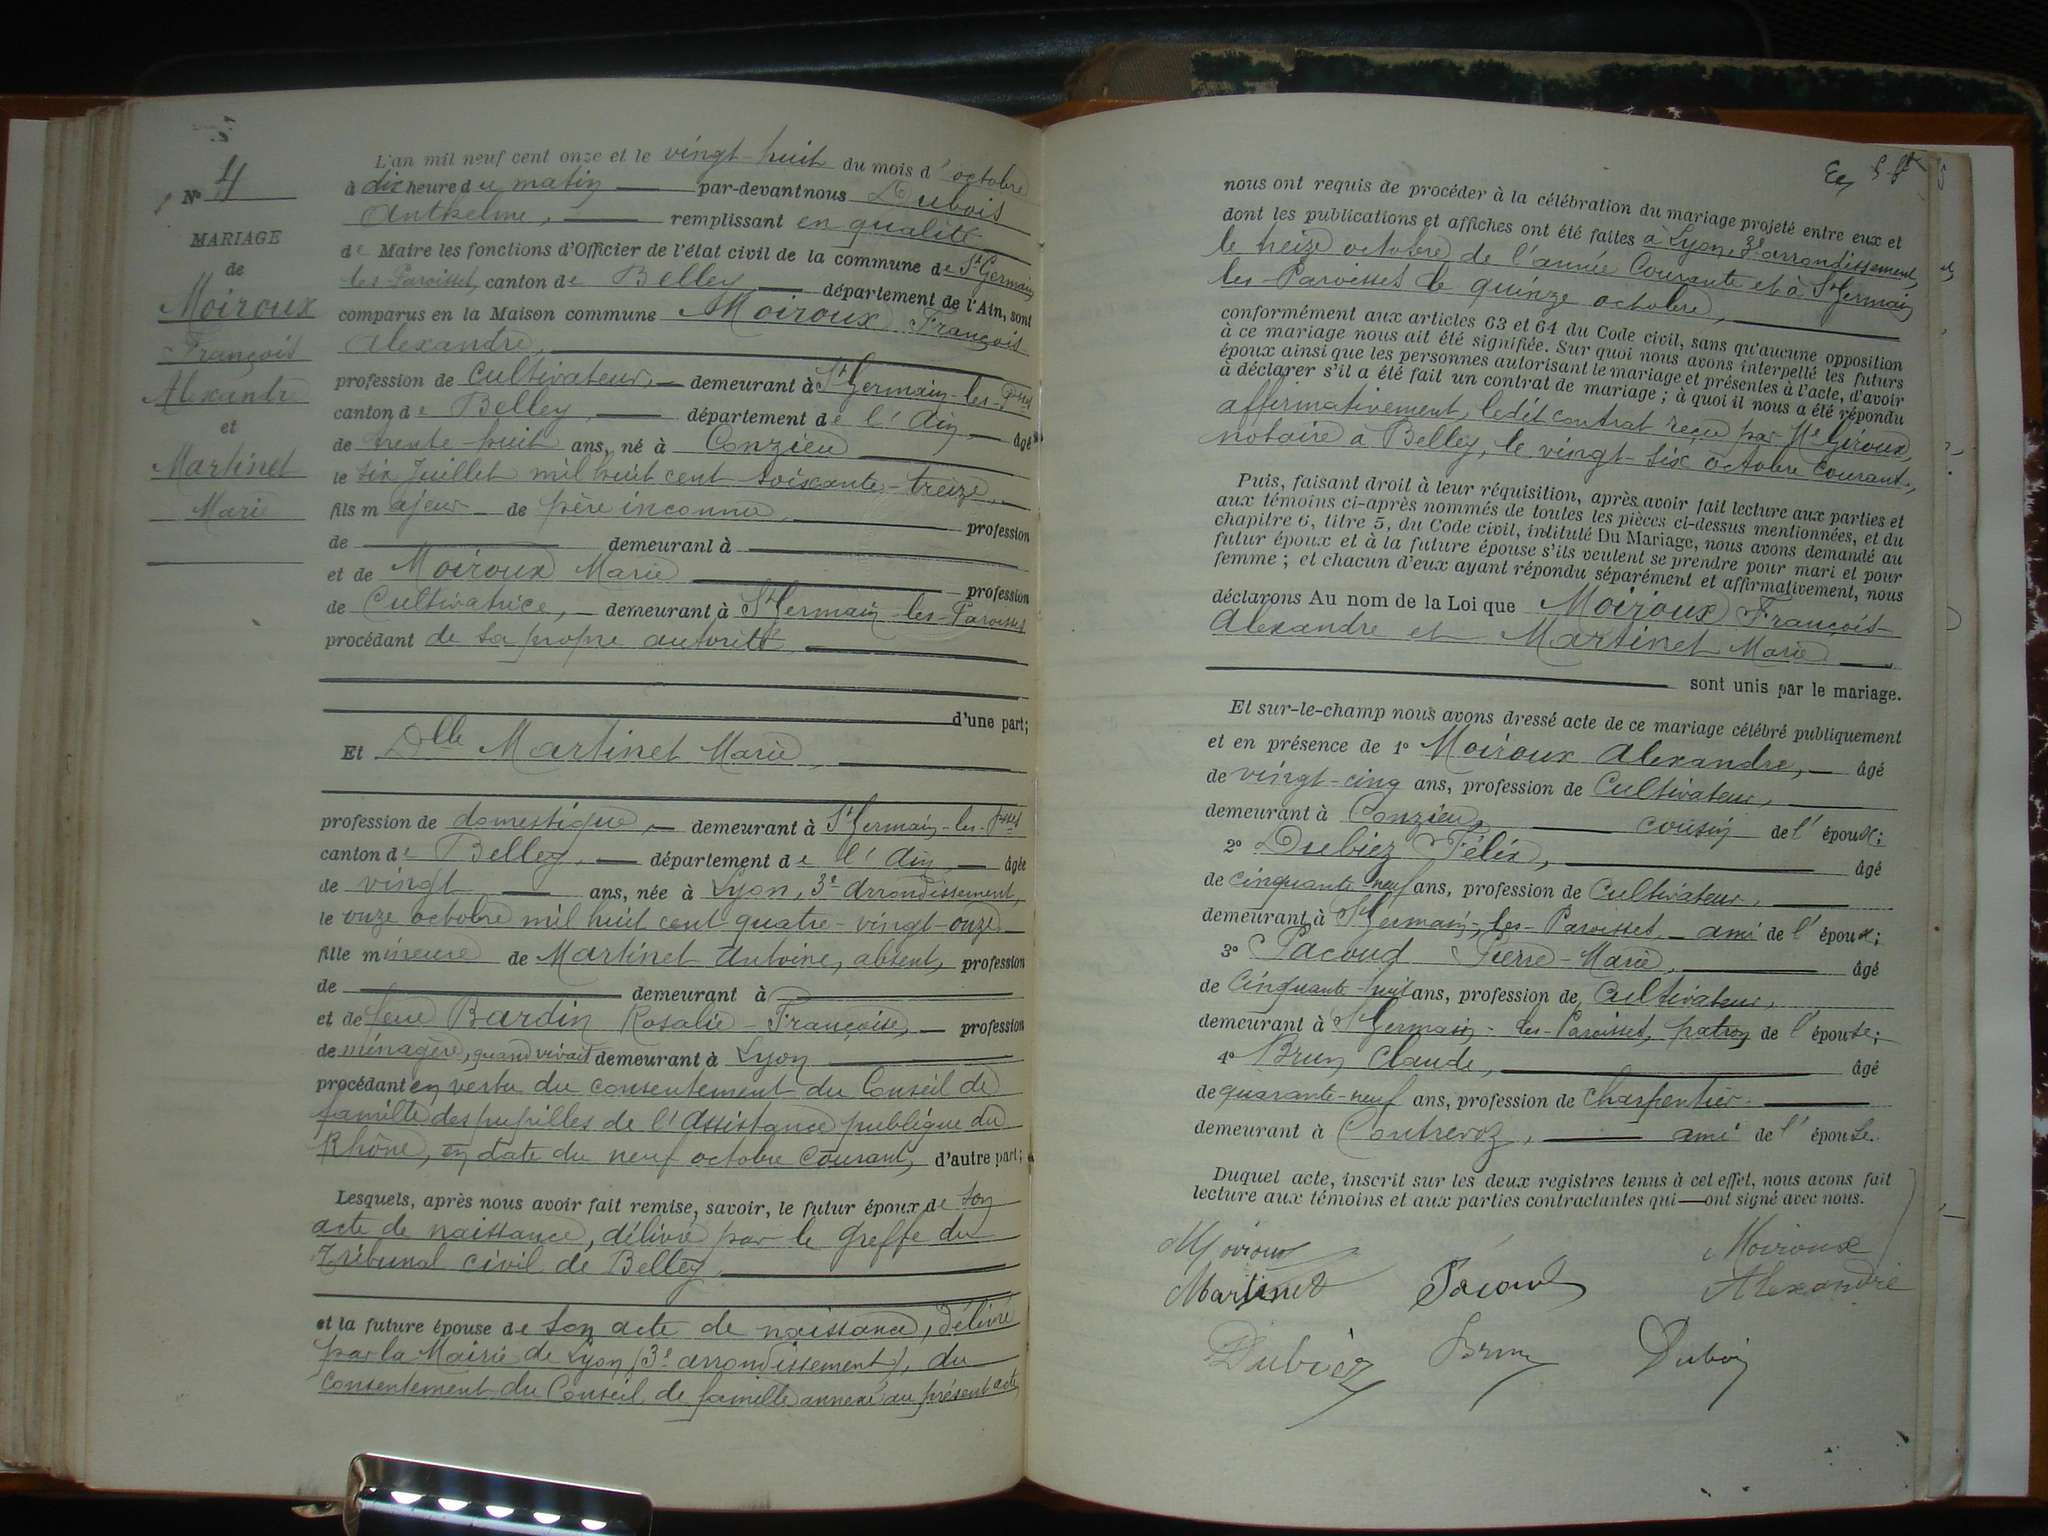 N° 4
MARIAGE
de
Moiroux
François
Alexandre
et
Martinet
Marie
L'an mil neuf cent onze et le vingt-huit du mois d'octobre
à dix heure du matin par-devant nous Dubois
Anthelme, remplissant en qualité
de Maire les fonctions d'Officier de l'état civil de la commune de St Germain
les-Paroisses, canton de Belley département de l'Ain, sont
comparus en la Maison commune Moiroux François
Alexandre,
profession de Cultivateur, demeurant à St Germain-les-Psses
canton de Belley, département de l'Ain, âgé
de trente-huit ans, né à Conzieu
le six Juillet mil huit cent soixante-treize,
fils majeur de père inconnu, profession
de demeurant à
et de Moiroux Marie profession
de Cultivatrice, demeurant à St Germain-les-Paroisses
procédant de sa propre autorité
d'une part;
Et Dlle Martinet Marie,
profession de domestique, demeurant à St Germain-les-Psses
canton de Belley, département de l'Ain, âgée
de vingt ans, née à Lyon, 3e arrondissement,
le onze octobre mil huit cent quatre-vingt-onze
fille mineure de Martinet Antoine, absent, profession
de demeurant à
et de feue Bardin Rosalie-Françoise, profession
de ménagère, quand vivait demeurant à Lyon
procédant en vertu du consentement du Conseil de
famille des pupilles de l'Assistance publique du
Rhône, en date du neuf octobre courant, d'autre part;
Lesquels, après nous avoir fait remise, savoir, le futur époux de son
acte de naissance, délivré par le greffe du
Tribunal civil de Belley
et la future épouse de son acte de naissance, délivré
par la Mairie de Lyon (3e arrondissement), du
consentement du Conseil de famille annexé au présent acte
nous ont requis de procéder à la célébration du mariage projeté entre eux et
dont les publications et affiches ont été faites à Lyon, 3e arrondissement,
le treize octobre de l'année courante et à St Germain
les-Paroisses le quinze octobre,
conformément aux articles 63 et 64 du Code civil, sans qu'aucune opposition
à ce mariage nous ait été signifiée. Sur quoi nous avons interpellé les futurs
époux ainsi que les personnes autorisant le mariage et présentes à l'acte, d'avoir
à déclarer s'il a été fait un contrat de mariage; à quoi il nous a été répondu
affirmativement, ledit contrat reçu par Me Giroux,
notaire à Belley, le vingt-six octobre courant,
Puis, faisant droit à leur réquisition, après avoir fait lecture aux parties et
aux témoins ci-après nommés de toutes les pièces ci-dessus mentionnées, et du
chapitre 6, titre 5, du Code civil, intitulé Du Mariage, nous avons demandé au
futur époux et à la future épouse s'ils veulent se prendre pour mari et pour
femme; et chacun d'eux ayant répondu séparément et affirmativement, nous
déclarons Au nom de la Loi que Moiroux François-
Alexandre et Martinet Marie
sont unis par le mariage.
Et sur-le-champ nous avons dressé acte de ce mariage célébré publiquement
et en présence de 1° Moiroux Alexandre, âgé
de vingt-cinq ans, profession de Cultivateur,
demeurant à Conzieu, cousin de l'époux;
2° Dubiez Félix, âgé
de cinquante-neuf ans, profession de Cultivateur,
demeurant à St Germain-les-Paroisses, ami de l'époux;
3° Pacoud Pierre-Marie, âgé
de Cinquante-huit ans, profession de Cultivateur,
demeurant à St Germain-les-Paroisses, patron de l'épouse;
4° Brun Claude, âgé
de quarante-neuf ans, profession de charpentier
demeurant à Contrevoz, ami de l'épouse.
Duquel acte, inscrit sur les deux registres tenus à cet effet, nous avons fait
lecture aux témoins et aux parties contractantes qui ont signé avec nous.
Moiroux Moiroux
Martinet Pacoud Alexandre
Dubiez Brun Dubois